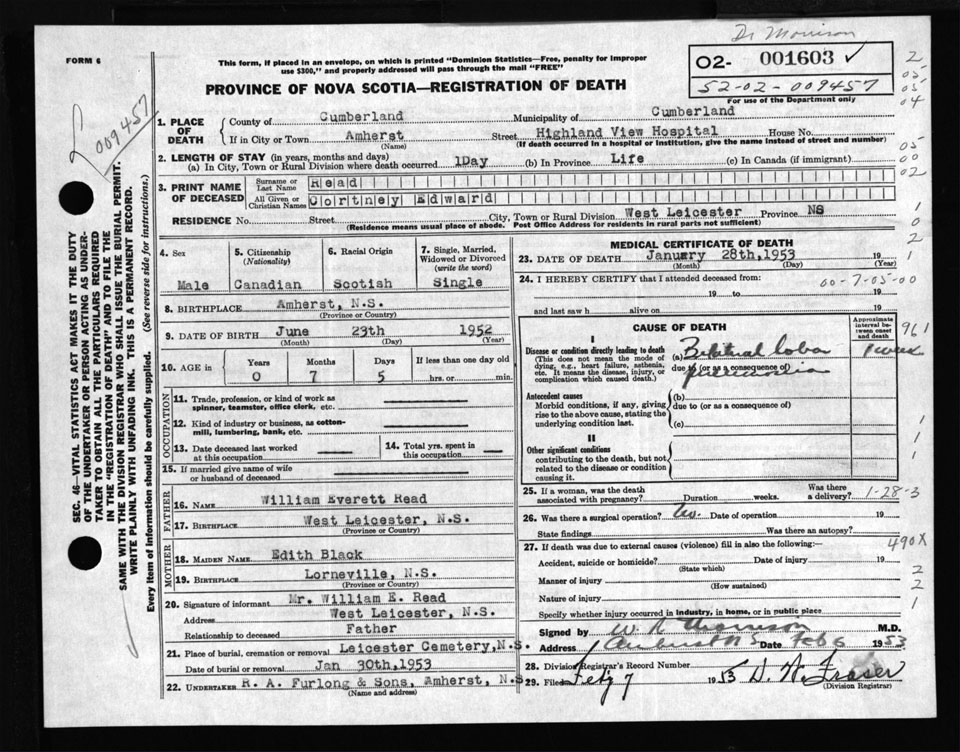 Dr Morrison
FORM 6
This form, if placed in an envelope, on which is printed "Dominion Statistics—Free, penalty for improper
use $300," and properly addressed will pass through the mail "FREE"
O2- 001603 ✓
52-02-009457
For use of the Department only
PROVINCE OF NOVA SCOTIA—REGISTRATION OF DEATH
009457
1. PLACE OF DEATH
County of Cumberland Municipality of Cumberland
If in City or Town Amherst Street Highland View Hospital House No.
(Name) (If death occurred in a hospital or institution, give the name instead of street and number)
2. LENGTH OF STAY (in years, months and days)
(a) In City, Town or Rural Division where death occurred 1Day (b) In Province Life (c) In Canada (if immigrant)
3. PRINT NAME OF DECEASED
Surname or Last Name Read
All Given or Christian Names Cortney Edward
RESIDENCE No. Street City, Town or Rural Division West Leicester Province NS
(Residence means usual place of abode. Post Office Address for residents in rural parts not sufficient)
4. Sex
Male
5. Citizenship (Nationality)
Canadian
6. Racial Origin
Scotish
7. Single, Married, Widowed or Divorced (write the word)
Single
8. BIRTHPLACE Amherst, N.S.
(Province or Country)
9. DATE OF BIRTH June 23th 1952
(Month) (Day) (Year)
10. AGE in
Years Months Days If less than one day old
0 7 5 hrs. or min.
OCCUPATION
11. Trade, profession, or kind of work as
spinner, teamster, office clerk, etc.
12. Kind of industry or business, as cotton-
mill, lumbering, bank, etc.
13. Date deceased last worked
at this occupation
14. Total yrs. spent in
this occupation
15. If married give name of wife
or husband of deceased
FATHER
16. NAME William Everett Read
17. BIRTHPLACE West Leicester, N.S.
(Province or Country)
MOTHER
18. MAIDEN NAME Edith Black
19. BIRTHPLACE Lorneville, N.S.
(Province or Country)
20. Signature of informant Mr. William E. Read
Address West Leicester, N.S.
Relationship to deceased Father
21. Place of burial, cremation or removal Leicester Cemetery, N.S.
Date of burial or removal Jan 30th, 1953
22. UNDERTAKER R. A. Furlong & Sons, Amherst, N.S
(Name and address)
MEDICAL CERTIFICATE OF DEATH
23. DATE OF DEATH January 28th, 1953 19
(Month) (Day) (Year)
24. I HEREBY CERTIFY that I attended deceased from:
00-7-05-00
19 to 19
and last saw h alive on 19
CAUSE OF DEATH
Approximate interval between onset and death
I
Disease or condition directly leading to death
(This does not mean the mode of
dying, e.g., heart failure, asthenia,
etc. It means the disease, injury, or
complication which caused death.)
(a) Bilateral lobar 1 week
due to (or as a consequence of)
pneumonia
Antecedent causes
Morbid conditions, if any, giving
rise to the above cause, stating the
underlying condition last.
(b)
due to (or as a consequence of)
(c)
II
Other significant conditions
contributing to the death, but not
related to the disease or condition
causing it.
25. If a woman, was the death
associated with pregnancy? Duration weeks. Was there a delivery?
1-28-3
26. Was there a surgical operation? No. Date of operation 19
State findings Was there an autopsy?
27. If death was due to external causes (violence) fill in also the following:—
490X
Accident, suicide or homicide? Date of injury 19
(State which)
Manner of injury
(How sustained)
Nature of injury
Specify whether injury occurred in industry, in home, or in public place
Signed by W R Morrison M.D.
Address Amherst NS Date Feb 6 1953
28. Division Registrar's Record Number
29. Filed Feby 7 1953 D. W. Fraser
(Division Registrar)
SEC. 46—VITAL STATISTICS ACT MAKES IT THE DUTY
OF THE UNDERTAKER OR PERSON ACTING AS UNDER-
TAKER TO OBTAIN ALL THE PARTICULARS REQUIRED
IN THE "REGISTRATION OF DEATH" AND TO FILE THE
SAME WITH THE DIVISION REGISTRAR WHO SHALL ISSUE THE BURIAL PERMIT.
WRITE PLAINLY WITH UNFADING INK. THIS IS A PERMANENT RECORD.
Every item of information should be carefully supplied. (See reverse side for instructions.)
2
05
04
05
00
02
1
0
2
1
961
1
1
1
2
2
1